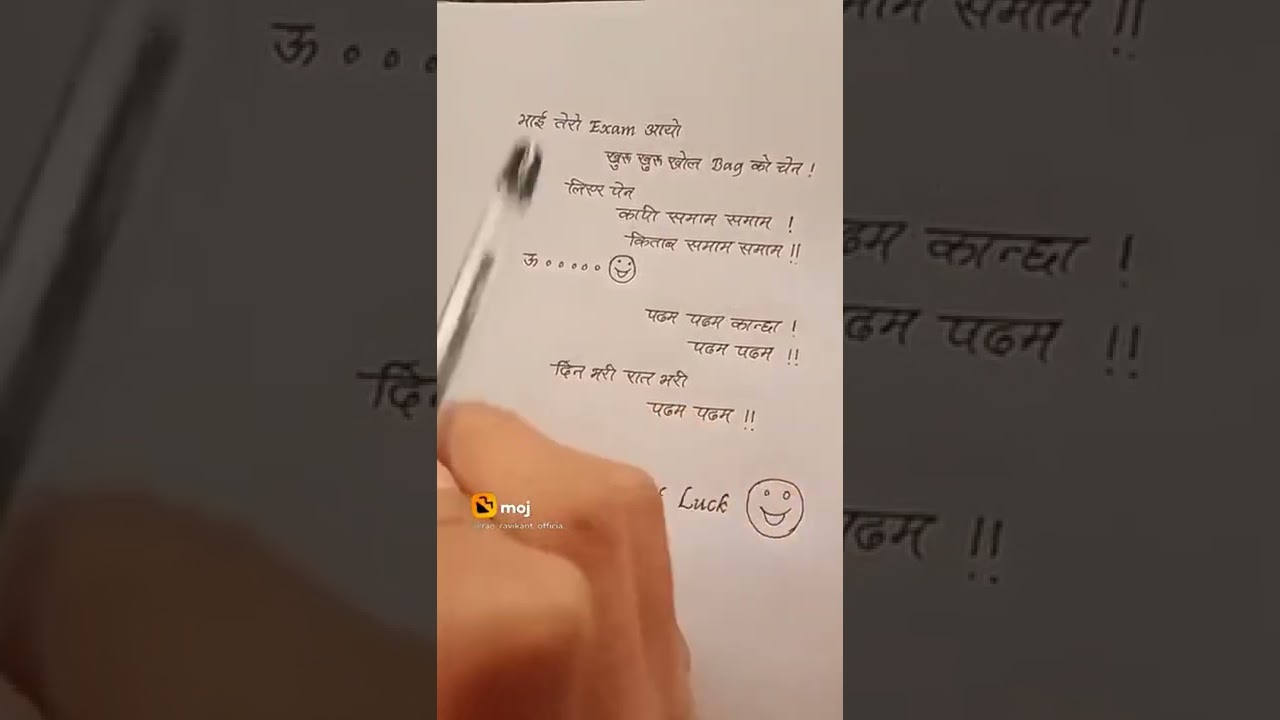 भाई तेरो Exam आयो
खुरू खुरू खोल Bag को चेन !
लिएर पेन
कापी समाम समाम !
किताब समाम समाम !!
ऊ.....
पढम पढम कान्छा !
पढम पढम !!
दिन भरी रात भरी
पढम पढम !!
Luck
moj